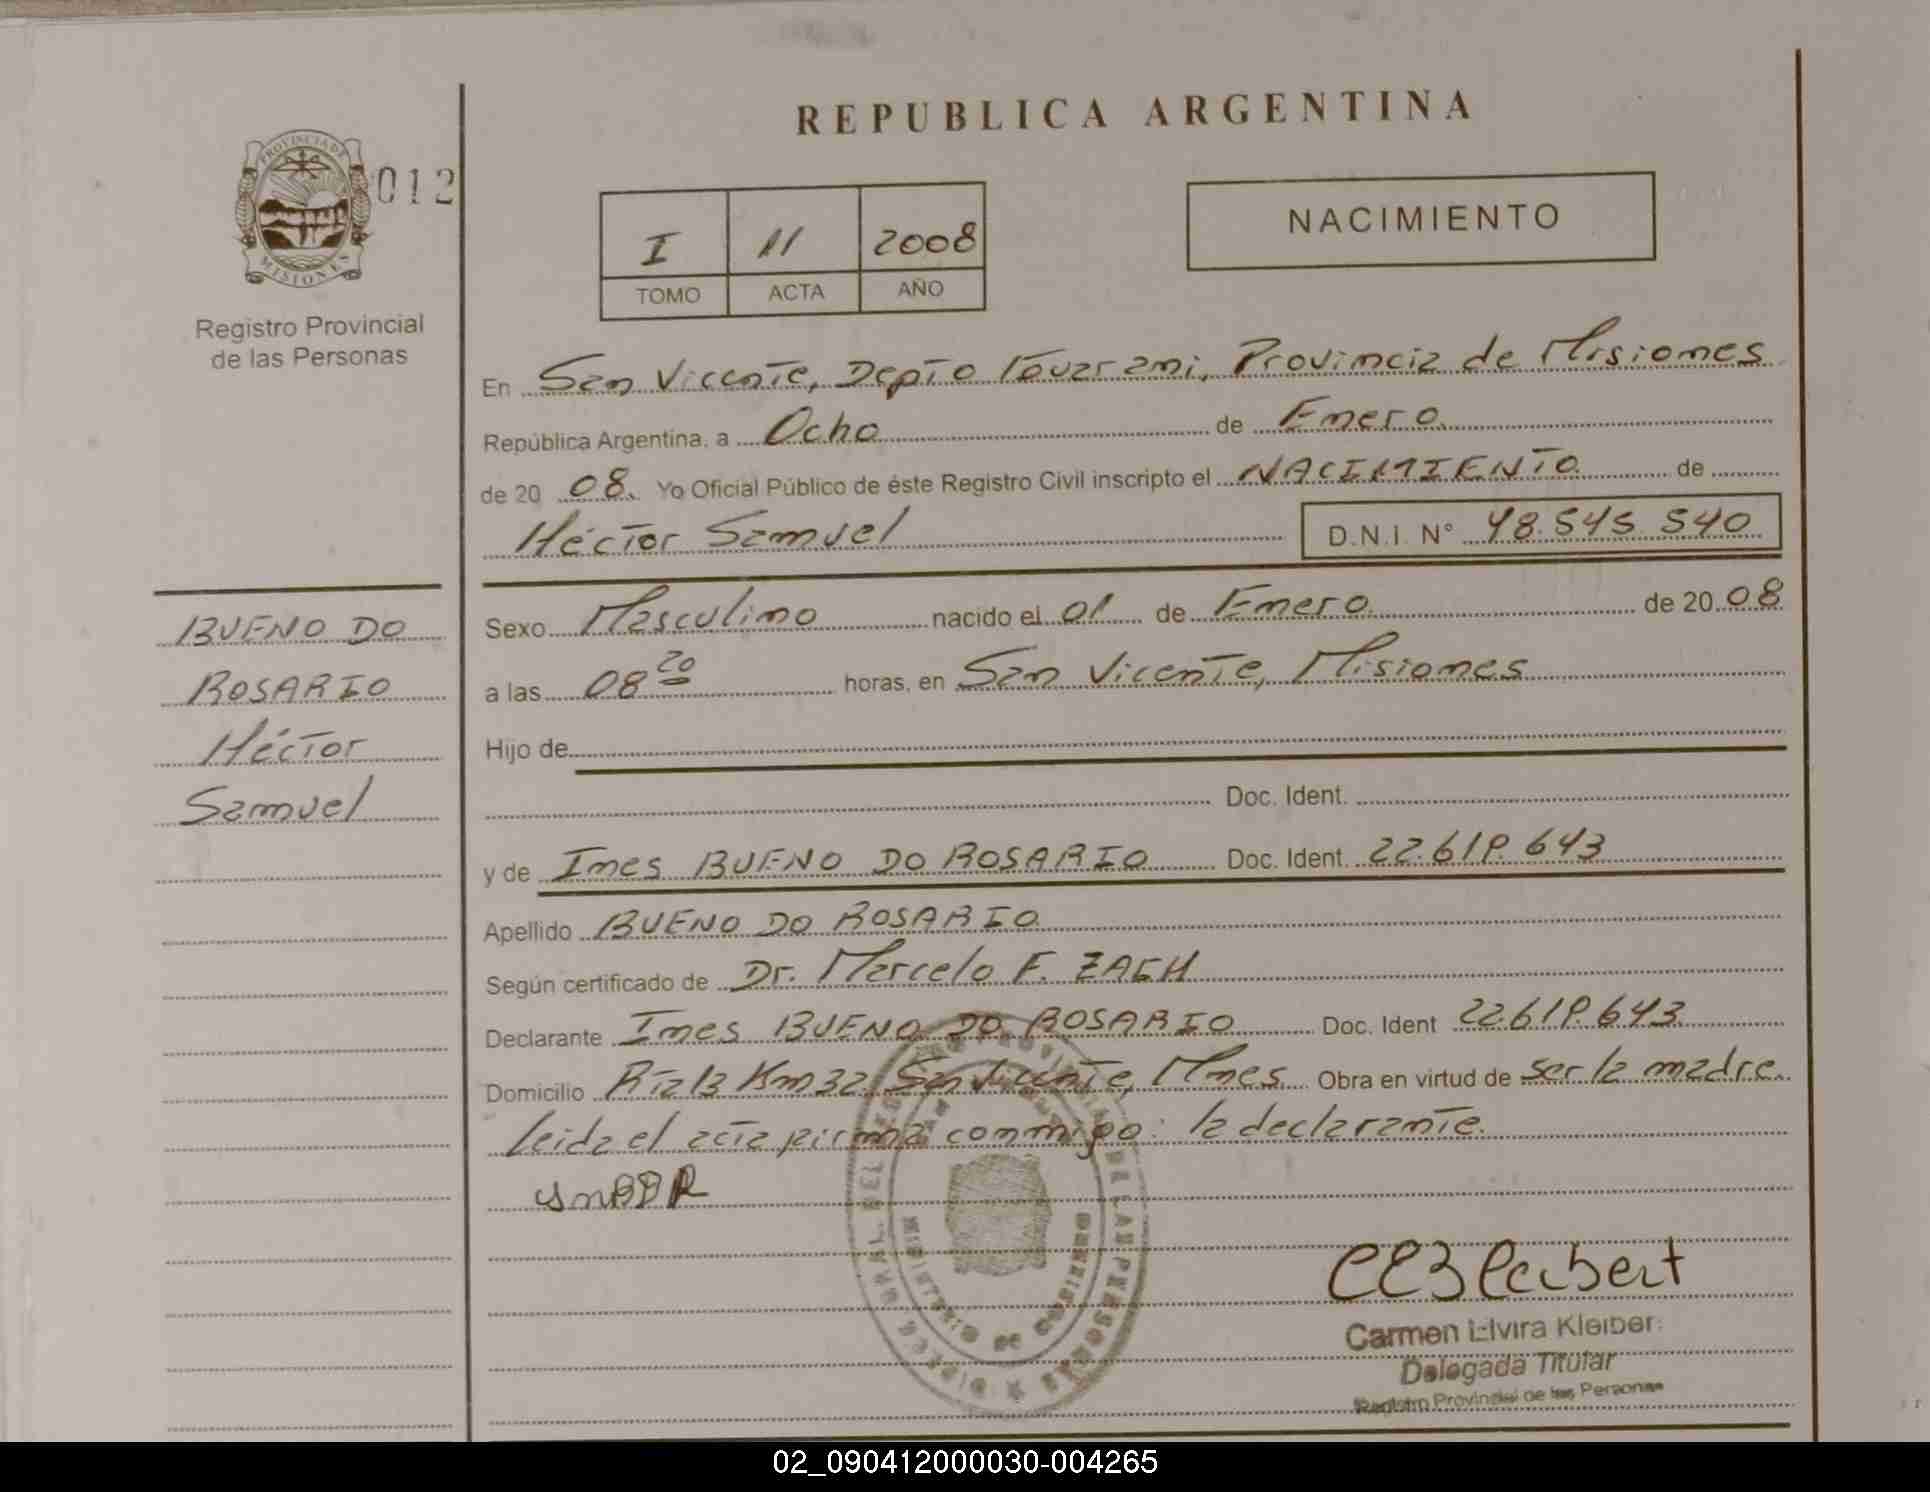 REPUBLICA ARGENTINA
PROVINCIA DE
MISIONES
012
Registro Provincial
de las Personas
I 11 2008
TOMO ACTA AÑO
NACIMIENTO
En San Vicente, Depto Guarani, Provincia de Misiones
República Argentina, a Ocho de Enero
de 20 08. Yo Oficial Público de éste Registro Civil inscripto el NACIMIENTO de
Héctor Samuel D.N.I. N° 48.545.540
BUENO DO
ROSARIO
Héctor
Samuel
Sexo Masculino nacido el 01 de Enero de 20 08
a las 08 20 horas, en San Vicente, Misiones
Hijo de
Doc. Ident.
y de Ines BUENO DO ROSARIO Doc. Ident. 22.619.643
Apellido BUENO DO ROSARIO
Según certificado de Dr. Marcelo F.
Declarante Ines BUENO DO ROSARIO Doc. Ident 22.619.643
Domicilio Rta 13 Km 32 San Vicente, Mnes. Obra en virtud de ser la madre.
leida el acta firma conmigo: la declarante.
Carmen Elvira Kleiber
Delegada Titular
Registro Provincial de las Personas
02_090412000030-004265